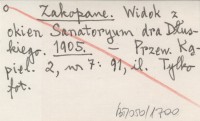 Zakopane. Widok z
okien Sanatoryum dra Dłus-
kiego. 1905. – Przew. Ką-
piel. 2, nr 7: 91, il. Tylko
fot.